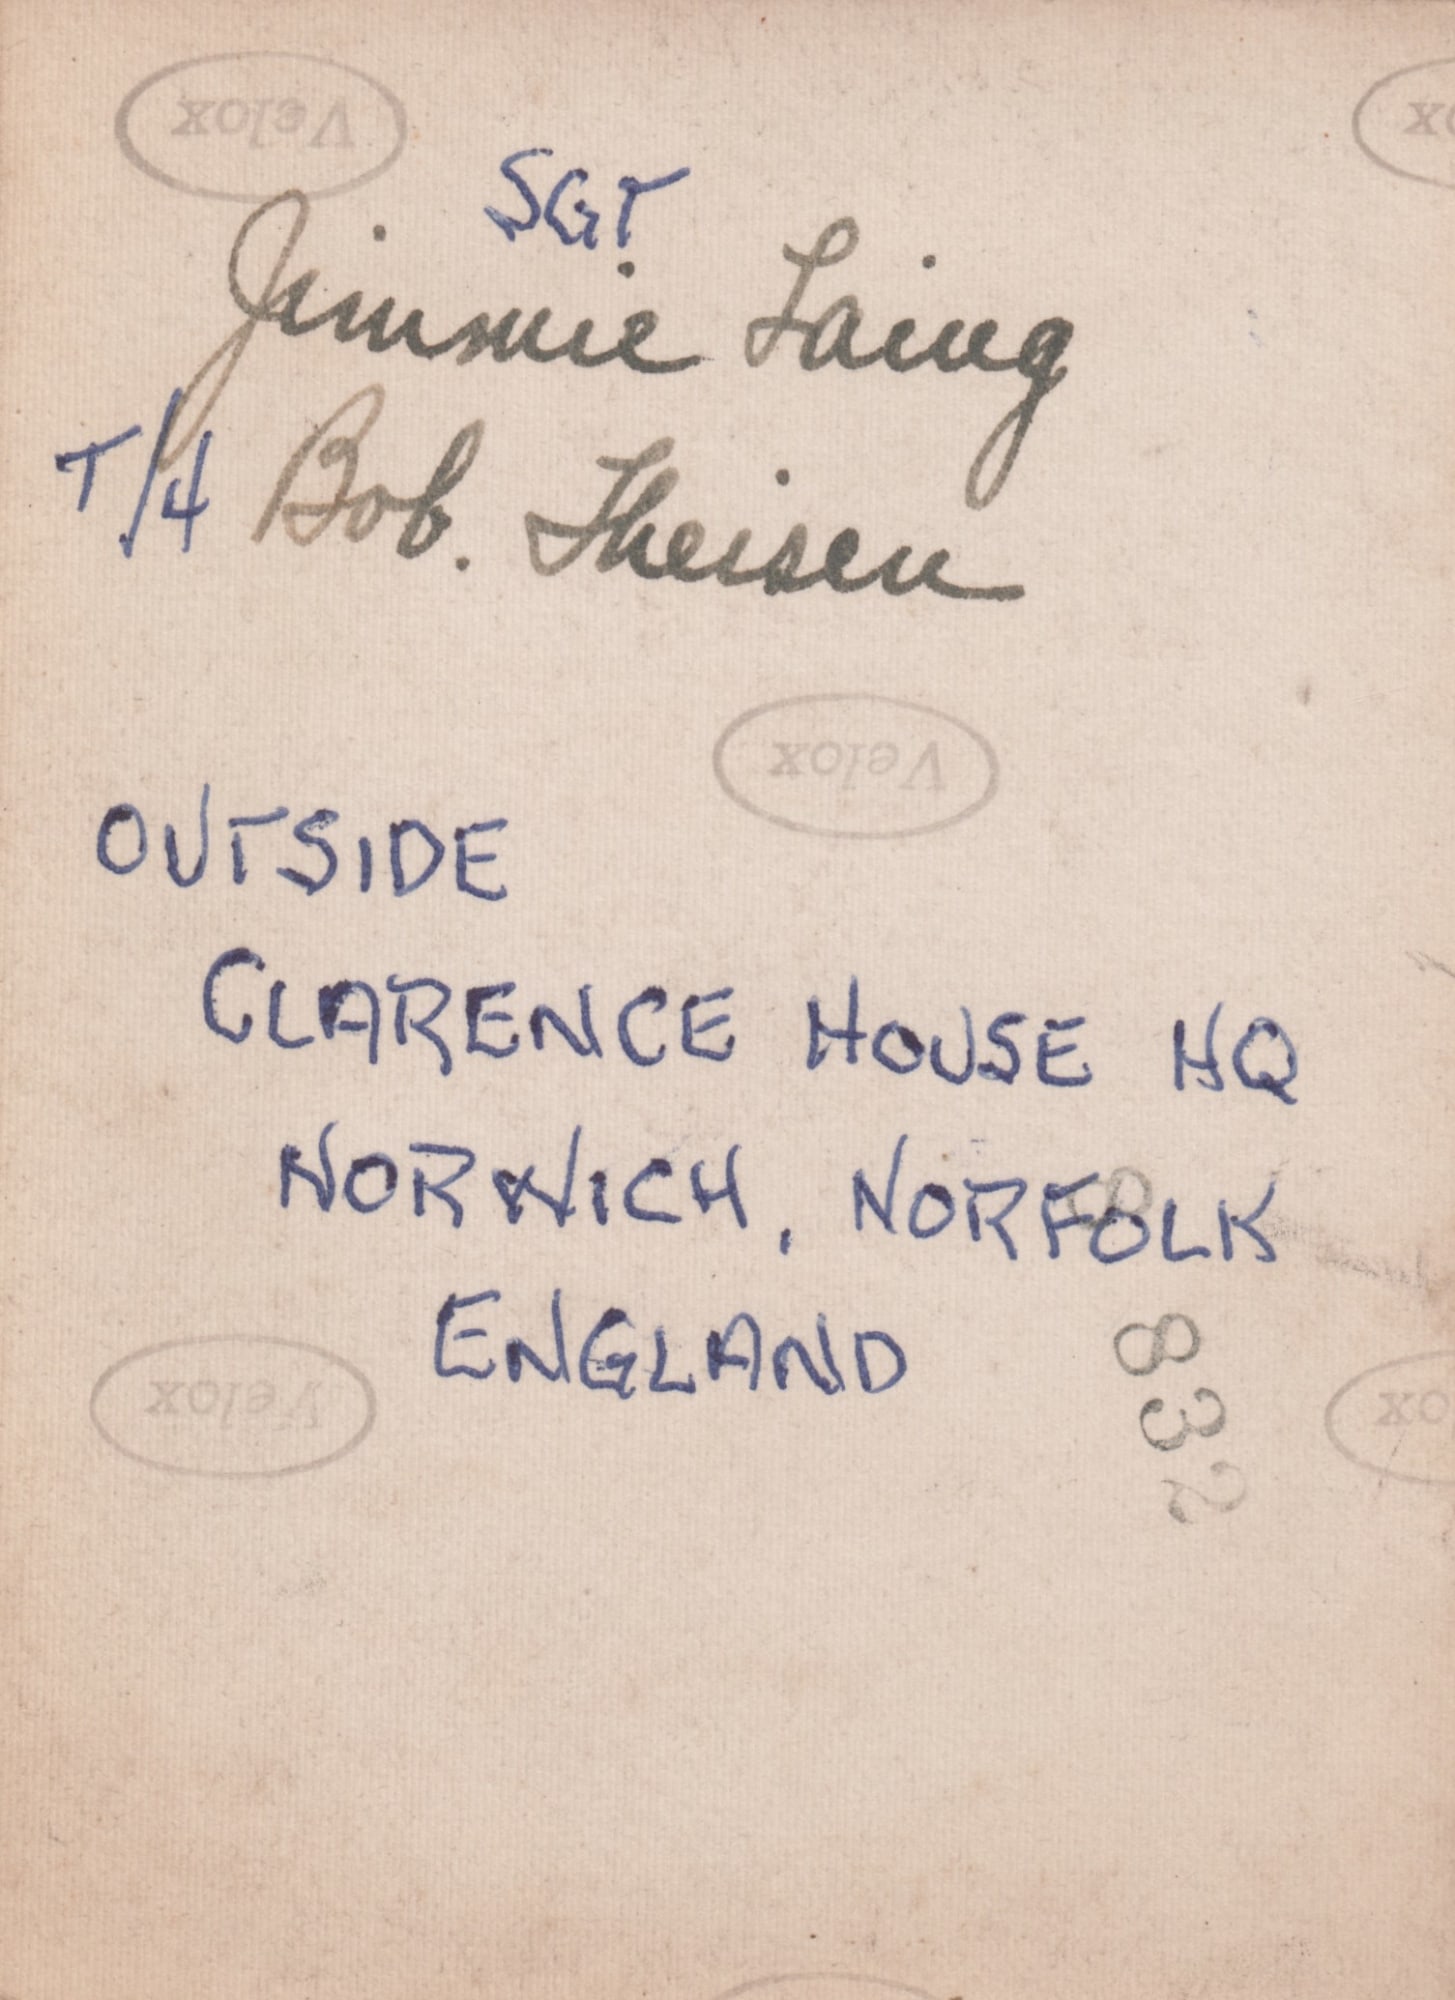 Velox
SGT
Jimmie Laing
T/4 Bob. Theisen
Velox
OUTSIDE
CLARENCE HOUSE HQ
NORWICH, NORFOLK
ENGLAND
8832
Velox